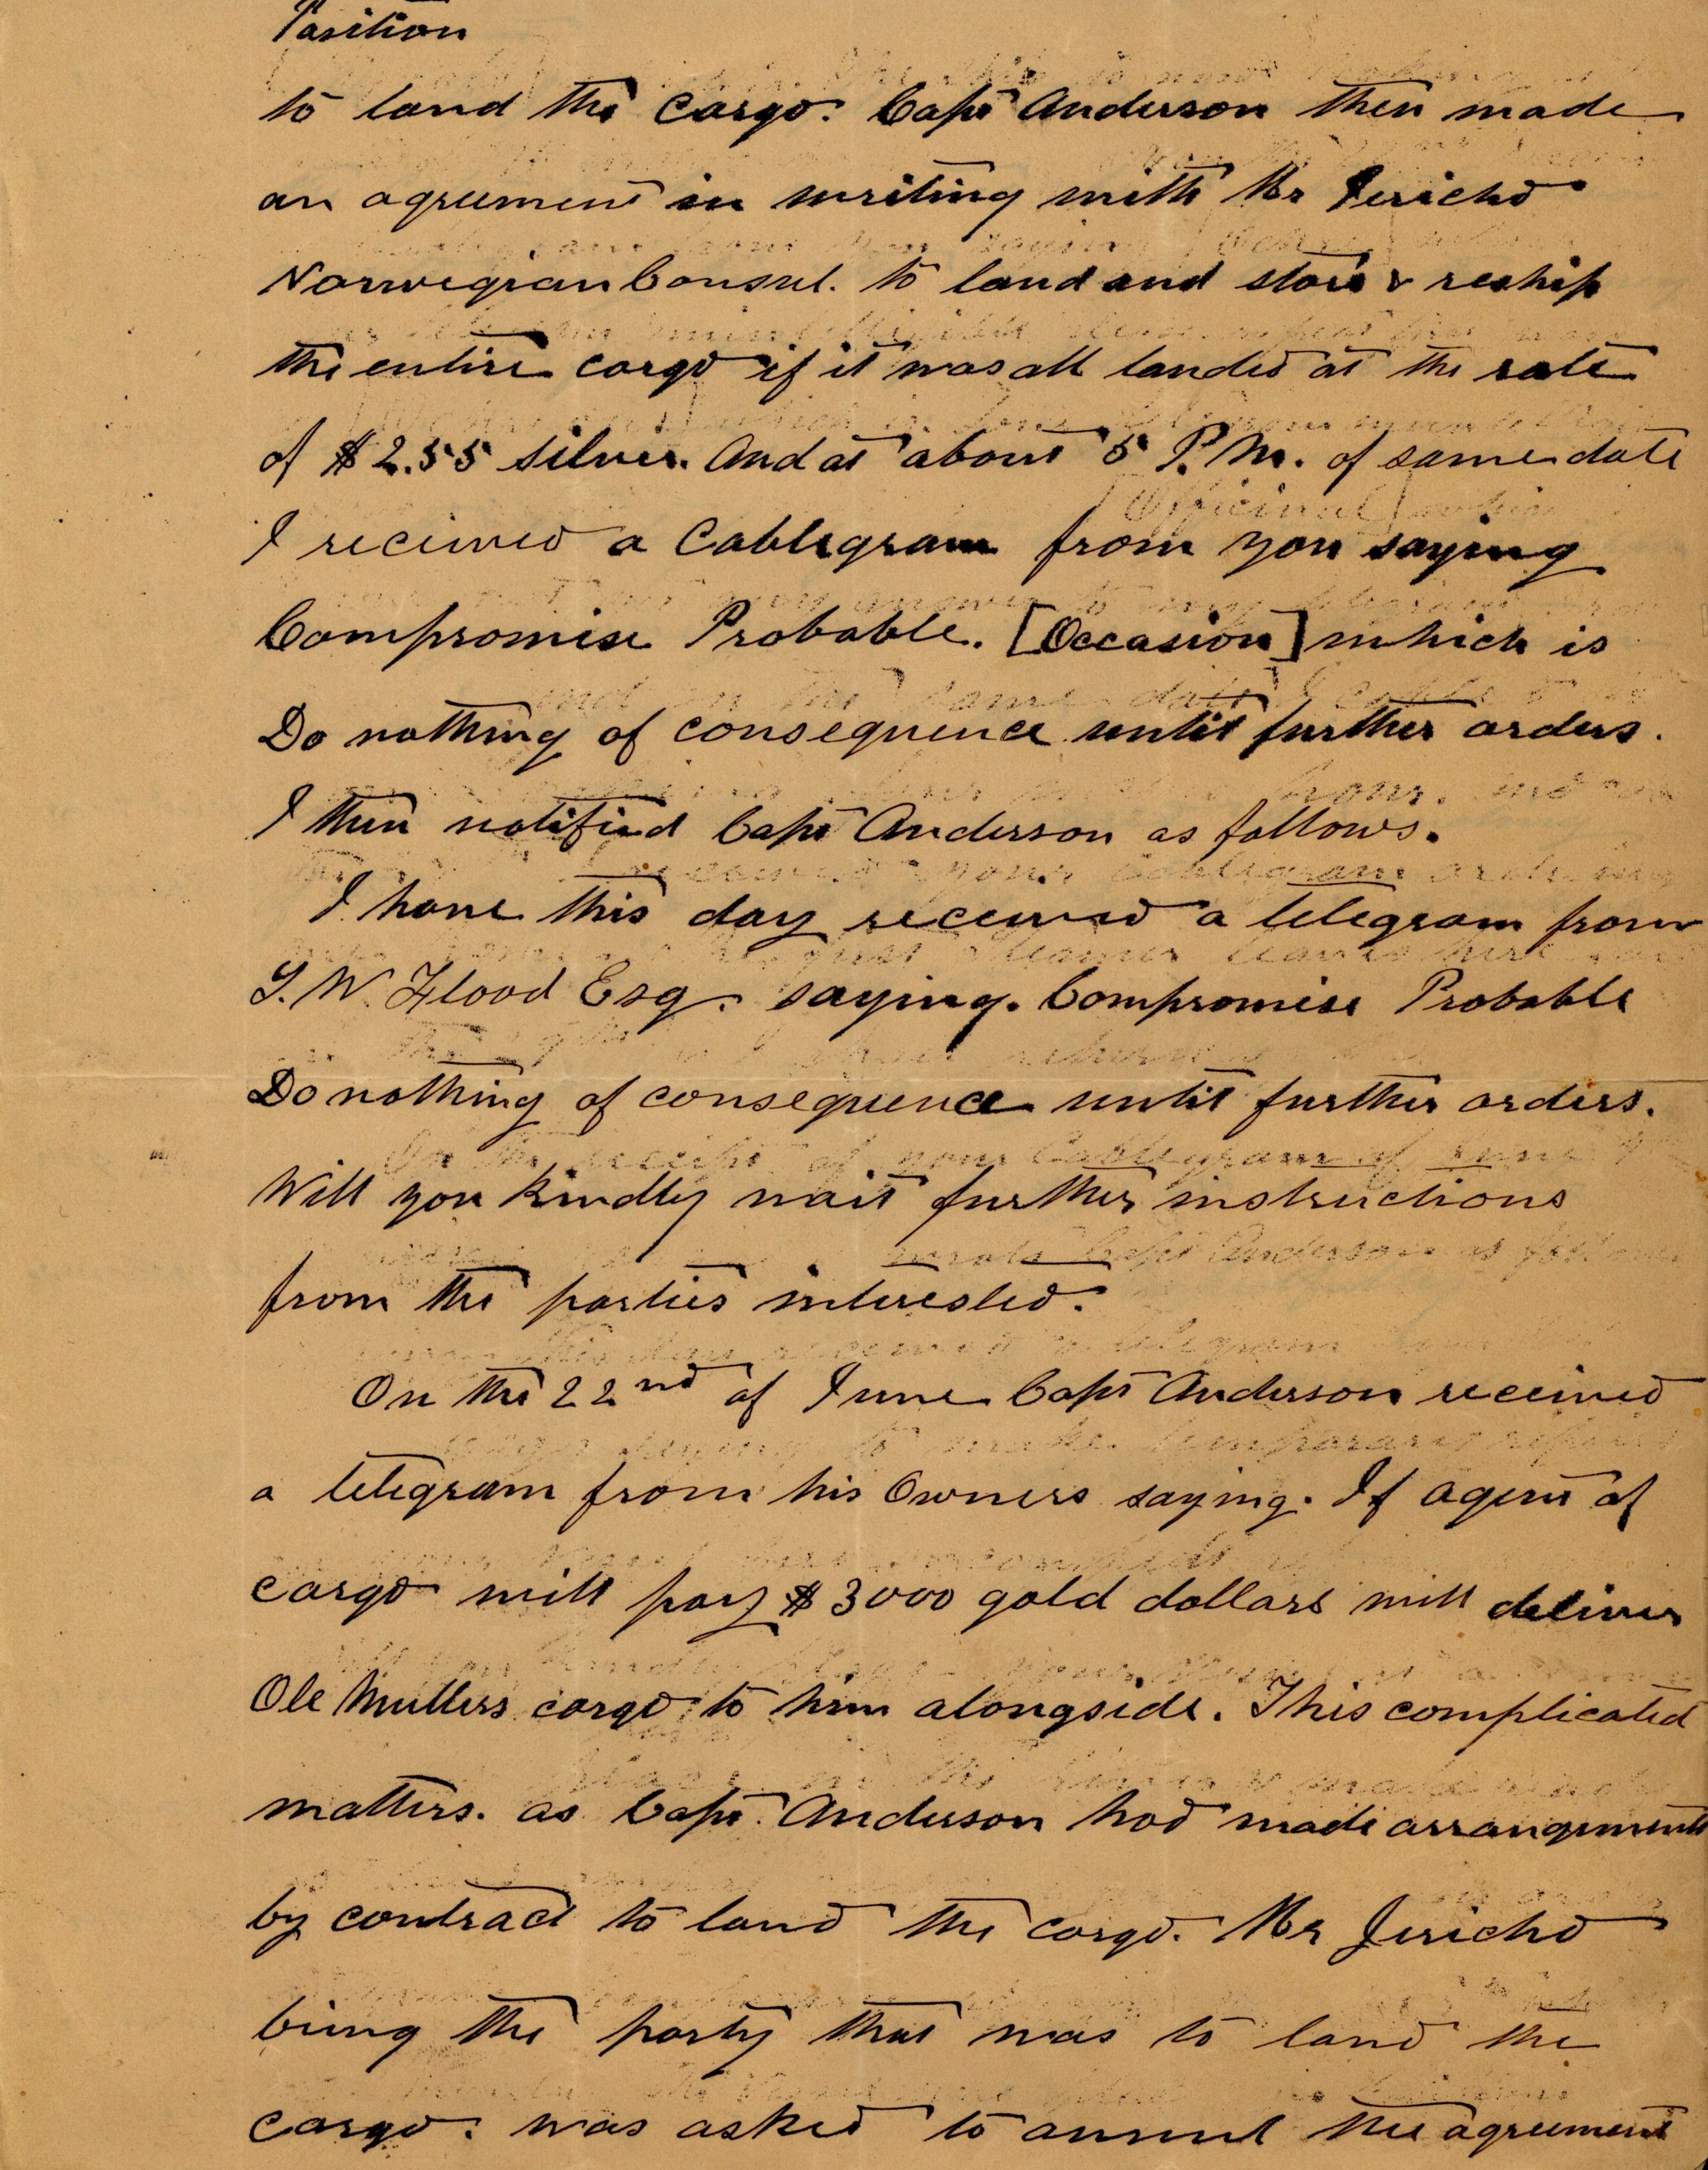 Position
to land the cargo. Capt Anderson then made
an agreement in writing with Mr Jericho
Norwegian Consul. to land and store & reship
the entire cargo if it was all landed at the rate
of $2.55 silver. And at about 5 P.M. of same date
I received a Cablegram from you saying
Compromise Probable. [Occasion] which is
Do nothing of consequence until further orders.
I then notified Capt Anderson as follows.
I have this day received a telegram from
S. W. Flood Esq. saying. Compromise Probable
Do nothing of consequence until further orders.
Will you kindly wait further instructions
from the parties interested.
On the 22nd of June Capt Anderson received
a telegram from his Owners saying. If agent of
cargo will pay $3000 gold dollars will deliver
Ole Mullers cargo to him alongside. This complicated
matters. as Capt. Anderson had made arrangements
by contract to land the cargo. Mr Jericho
being the party that was to land the
cargo. was asked to annul the agreement